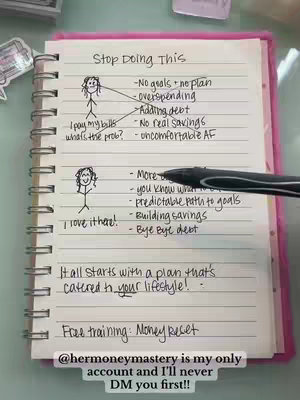 Stop Doing This
-No goals + no plan
-overspending
-Adding debt
-No real savings
-uncomfortable AF
I pay my bills
whats the prob?
-More
-you know what
-predictable path to goals
-Building savings
-Bye Bye debt
I love it here!
It all starts with a plan that's
catered to your lifestyle!
Free training: Money Reset
@hermoneymastery is my only
account and I'll never
DM you first!!